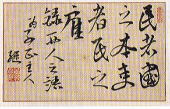 民者國
之本吏
者民之
雇
錄西人之語
為子正主人